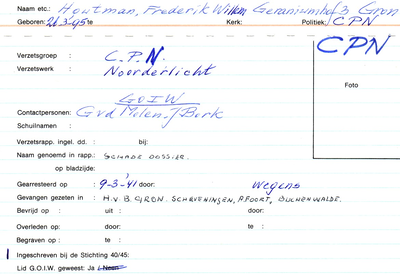 Naam etc.: Houtman, Frederik Willem Geraniumhof 3 Gron
Geboren: 21-3-'05 te Kerk: Politiek: CPN
CPN
Verzetsgroep : C.P.N.
Verzetswerk : Noorderlicht
Foto
GOIW
Contactpersonen: G vd Molen, J Bork
Schuilnamen :
Verzetsrapp. ingel. dd. : bij:
Naam genoemd in rapp.: SCHADE DOSSIER.
op bladzijde:
Gearresteerd op : 9-3-'41 door: wegens
Gevangen gezeten in : H.v.B. GRON. SCHEVENINGEN, A.FOORT, BUCHENWALDE.
Bevrijd op : uit : door:
Overleden op: door: te :
Begraven op : te :
Ingeschreven bij de Stichting 40/45:
Lid G.O.I.W. geweest: Ja / Neen